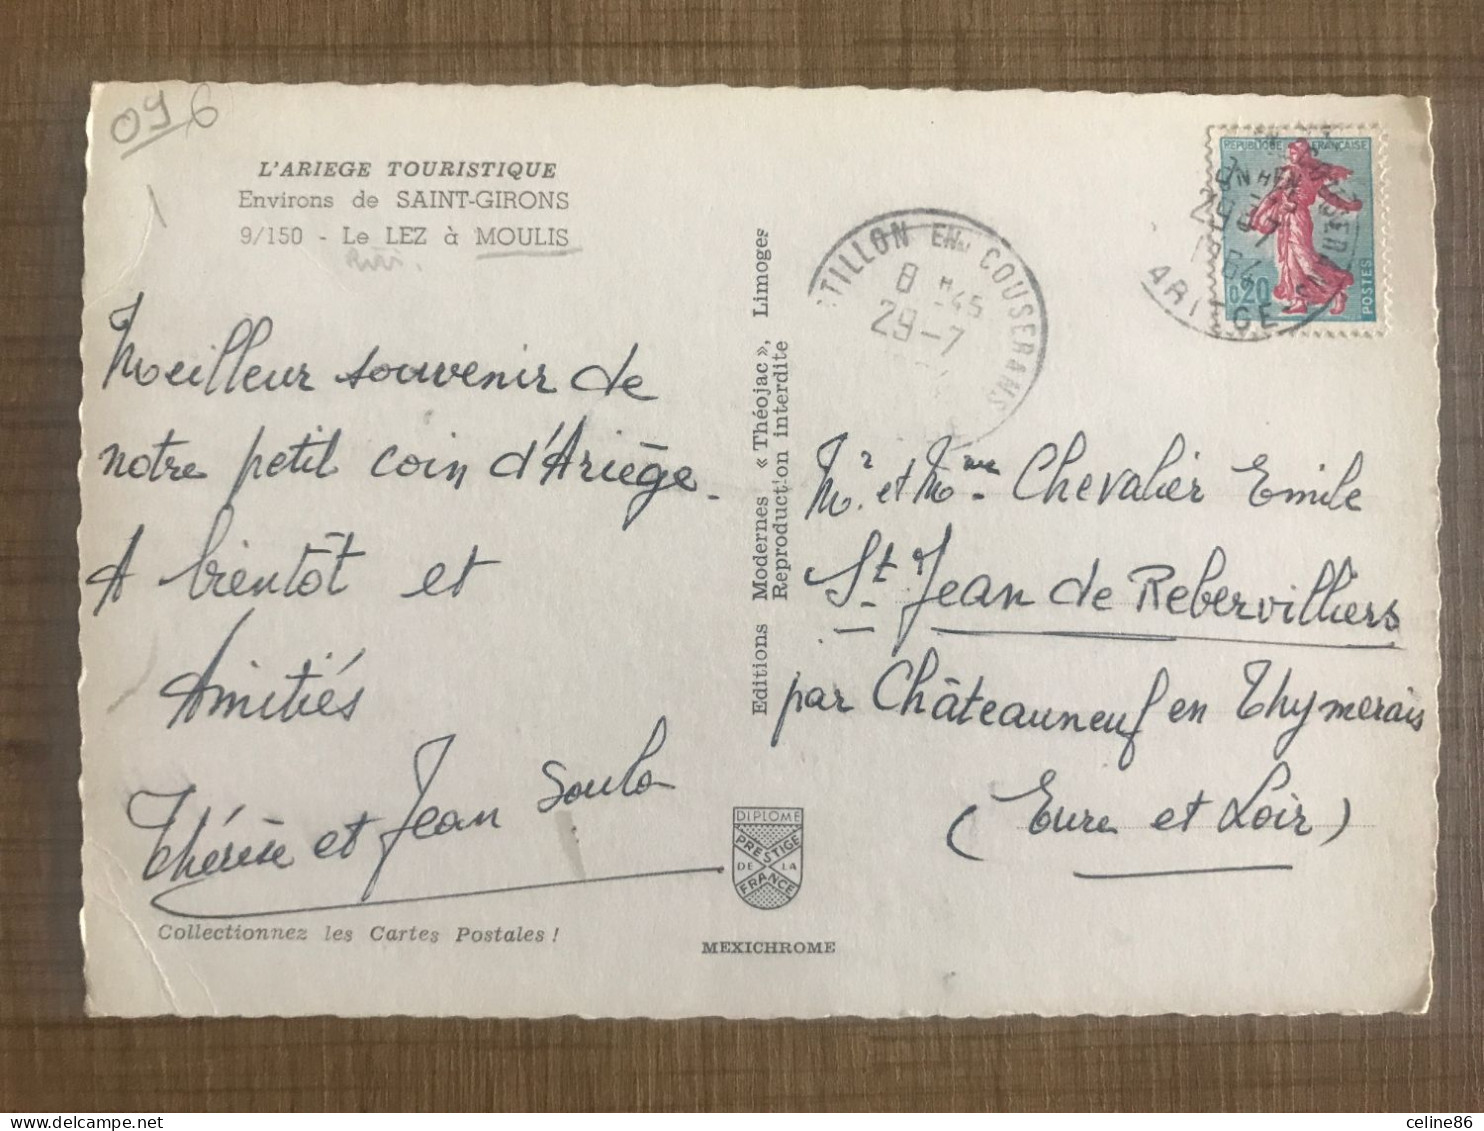 096
L'ARIEGE TOURISTIQUE
Environs de SAINT-GIRONS
9/150 - Le LEZ à MOULIS
Meilleur souvenir de
notre petit coin d'Ariège.
A bientôt et
Amitiés
Thérèse et Jean Soula
Collectionnez les Cartes Postales !
Editions Modernes « Théojac », Limoges
Reproduction interdite
DIPLOME
PRESTIGE
DE LA
FRANCE
MEXICHROME
TILLON EN COUSERANS
8 H 45
29-7
REPUBLIQUE FRANÇAISE
0,20
POSTES
29-7
1964
ARIEGE
Mr. et Mme Chevalier Emile
St Jean de Rebervilliers
par Châteauneuf en Thymerais
(Eure et Loir)
delcampe.net
celine86